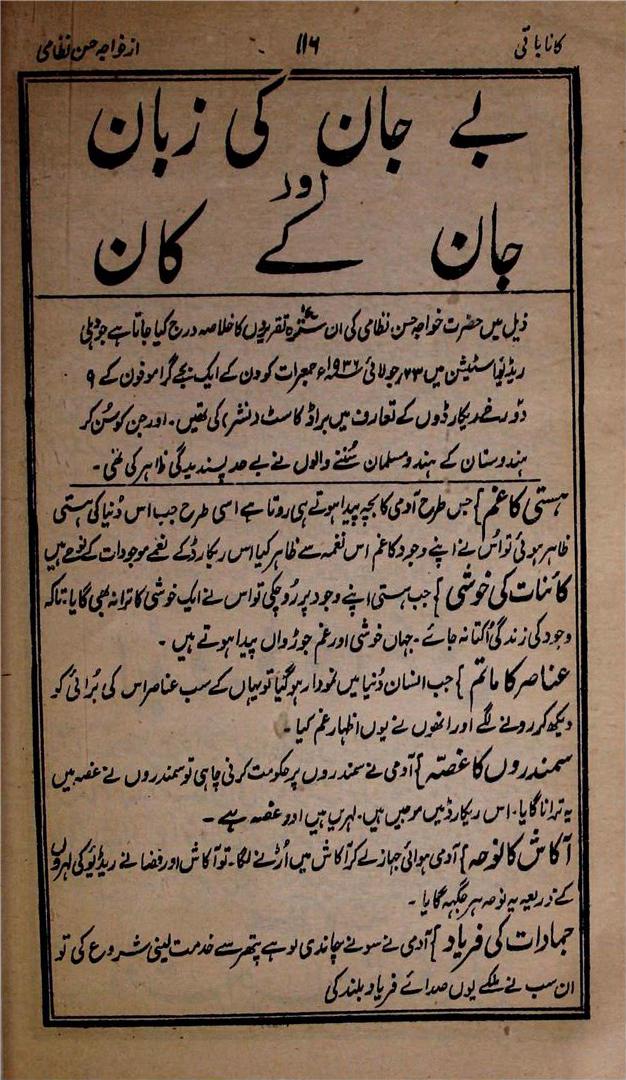 کانا باتی ۱۱۶ از خواجہ حسن نظامی
بے جان کی زبان
اور
جان کے کان
ذیل میں حضرت خواجہ حسن نظامی کی ان سترہ تقریروں کا خلاصہ درج کیا جاتا ہے جو دہلی
ریڈیو اسٹیشن میں ۲۳ جولائی ۱۹۳۶ء جمعرات کو دن کے ایک بجے گراموفون کے ۹
دو رخے ریکارڈوں کے تعارف میں براڈ کاسٹ (نشر) کی تھیں۔ اور جن کو سُن کر
ہندوستان کے ہندو مسلمان سُننے والوں نے بے حد پسندیدگی ظاہر کی تھی۔
ہستی کا غم } جس طرح آدمی کا بچہ پیدا ہوتے ہی روتا ہے اسی طرح جب اس دُنیا کی ہستی
ظاہر ہوئی تو اُس نے اپنے وجود کا غم اس نغمہ سے ظاہر کیا اس ریکارڈ کے نغمے موجودات کے نوحے ہیں
کائنات کی خوشی } جب ہستی اپنے وجود پر رُو چکی تو اس نے ایک خوشی کا ترانہ بھی گایا۔ تاکہ
وجود کی زندگی اُکتا نہ جائے۔ جہاں خوشی اور غم جوڑواں پیدا ہوتے ہیں۔
عناصر کا ماتم } جب انسان دُنیا میں نمودار ہو گیا تو یہاں کے سب عناصر اس کی بُرائی کو
دیکھ کر رونے لگے اور انھوں نے یوں اظہار غم کیا۔
سمندروں کا غصّہ } آدمی نے سمندروں پر حکومت کرنی چاہی تو سمندروں نے غصہ میں
یہ ترانا گایا۔ اس ریکارڈ میں موجیں ہیں۔ لہریں ہیں اور غصہ ہے۔
آکاش کا نوحہ } آدمی ہوائی جہاز لے کر آکاش میں اُڑنے لگا۔ تو آکاش اور فضا نے ریڈیو کی لہروں
کے ذریعہ یہ نوحہ ہر جگہ گایا۔
جمادات کی فریاد } آدمی نے سونے چاندی لوہے پتھر سے خدمت لینی شروع کی تو
ان سب نے ملکے یوں صدائے فریاد بلند کی